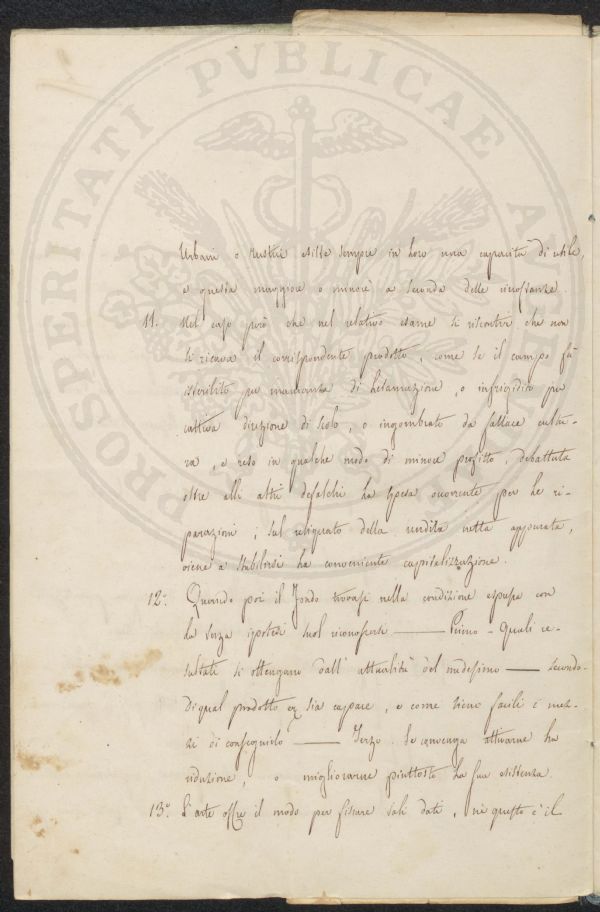 PROSPERITATI PVBLICAE AVGENDAE
Urbani o rustici esiste sempre in loro una capacità di utile,
e questa maggiore o minore a seconda delle circostanze.
11. Nel caso però che nel relativo esame si riscontri che non
si ricava il corrispondente prodotto, come se il campo fù
isterilito per mancanza di letamazione, o infrigidito per
cattiva direzione di scolo, o ingombrato da fallace cultu-
ra, e reso in qualche modo di minore profitto, debattuta
oltre alli altri defalchi la spesa occorrente per le ri-
parazioni; sul reliquato della rendita netta appurata,
viene a stabilirsi la conveniente capitalizzazione.
12.° Quando poi il Fondo trovasi nella condizione espressa con
la terza ipotesi suol riconoscersi —— Primo - Quali re-
sultati si ottengano dall' attualità del medesimo —— Secondo -
Di qual prodotto sia capace, e come siano facili i mez-
zi di conseguirlo —— Terzo. Se convenga attivarne la
riduzione, o migliorarne piuttosto la sua esistenza.
13.° L'arte offre il modo per fissare tali dati, nè questo è il